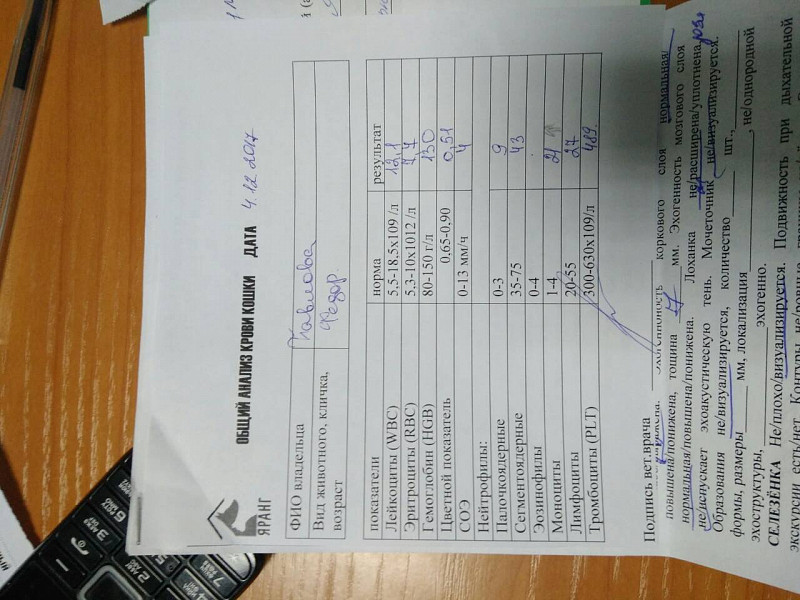 ЯРАНГ
ОБЩИЙ АНАЛИЗ КРОВИ КОШКИ ДАТА 4.12.2017
ФИО владельца Павлова
Вид животного, кличка, возраст Федор.
показатели норма результат
Лейкоциты (WBC) 5,5-18,5х109 /л 12,1
Эритроциты (RBC) 5,3-10х1012 /л 7,7
Гемоглобин (HGB) 80-150 г/л 130
Цветной показатель 0,65-0,90 0,51
СОЭ 0-13 мм/ч 4
Нейтрофилы:
Палочкоядерные 0-3 9
Сегментоядерные 35-75 43
Эозинофилы 0-4
Моноциты 1-4 21
Лимфоциты 20-55 27
Тромбоциты (PLT) 300-630х109/л 489
Подпись вет.врача
эхогенность коркового слоя нормальная/
повышена/понижена, толщина мм. Эхогенность мозгового слоя
нормальная/повышена/понижена. Лоханка не/расширена/уплотнена,
не/испускает эхоакустическую тень. Мочеточник не/визуализируется.
Образования не/визуализируется, количество шт.,
формы, размеры мм, локализация , не/однородной
эхоструктуры, эхогенно.
СЕЛЕЗЁНКА Не/плохо/визуализируется. Подвижность при дыхательной
экскурсии есть/нет. Контуры не/ровные